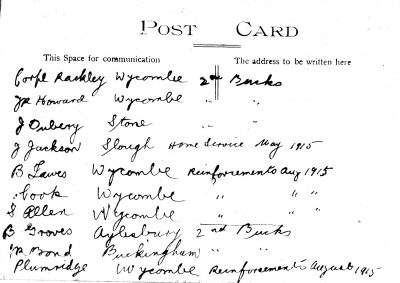 POST CARD
This Space for communication The address to be written here
Corpl Rackley Wycombe 2nd Bucks
Howard Wycombe " "
J Oubery Stone " "
J Jackson Slough Home Service May 1915
B Lawes Wycombe Reinforcements Aug 1915
Cook Wycombe " " "
S Allen Wycombe
B Groves Aylesbury 2nd Bucks
Bond Buckingham " "
Plumridge Wycombe Reinforcements August 1915